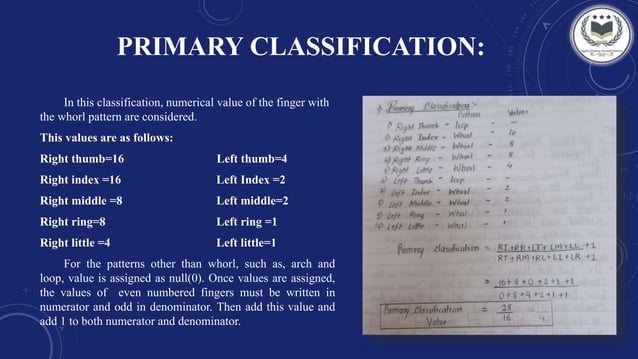 PRIMARY CLASSIFICATION:
In this classification, numerical value of the finger with
the whorl pattern are considered.
This values are as follows:
Right thumb=16 Left thumb=4
Right index =16 Left Index =2
Right middle =8 Left middle=2
Right ring=8 Left ring =1
Right little =4 Left little=1
For the patterns other than whorl, such as, arch and
loop, value is assigned as null(0). Once values are assigned,
the values of even numbered fingers must be written in
numerator and odd in denominator. Then add this value and
add 1 to both numerator and denominator.
Primary Classification:-
Pattern Values
1) Right Thumb - loop - -
2) Right Index - Whorl - 16
3) Right Middle - Whorl - 8
4) Right Ring - Whorl - 8
5) Right Little - Whorl - 4
6) Left Thumb - loop - -
7) Left Index - Whorl - 2
8) Left Middle - Whorl - 2
9) Left Ring - Whorl - 1
10) Left Little - Whorl - 1
Primary Classification = RI+RR+LT+LM+LL +1
RT+RM+RL+LI+LR +1
= 16+8+0+2+1 +1
0+8+4+2+1 +1
Primary Classification Value = 28
16